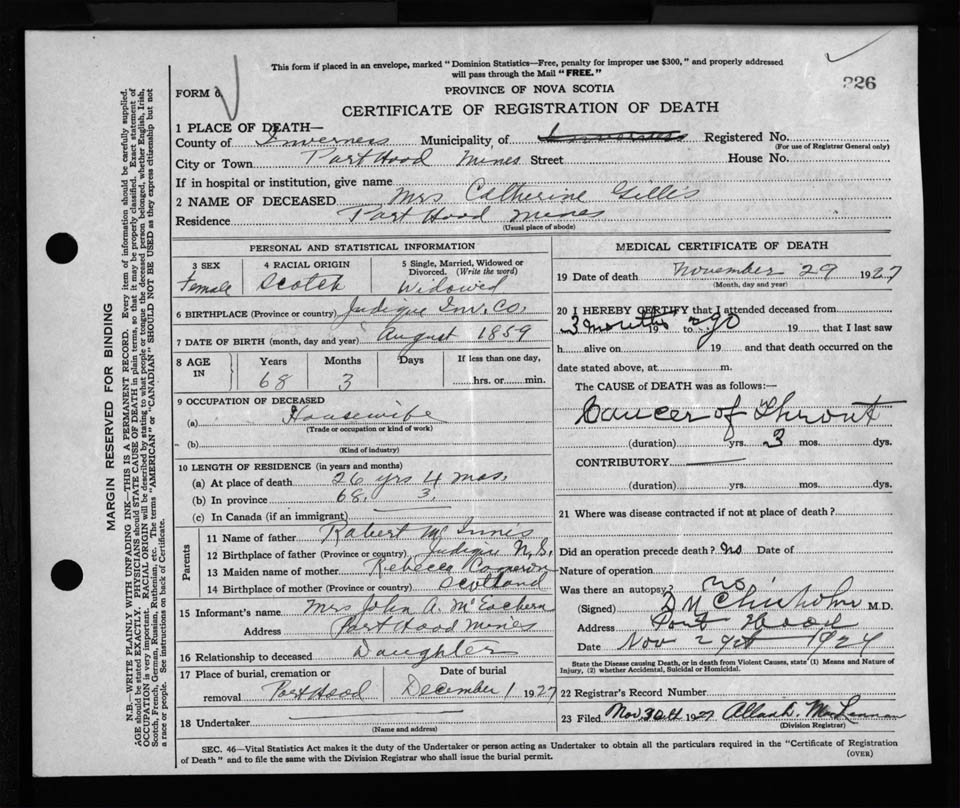 This form if placed in an envelope, marked "Dominion Statistics—Free, penalty for improper use $300," and properly addressed
will pass through the Mail "FREE."
226
FORM 6
PROVINCE OF NOVA SCOTIA
CERTIFICATE OF REGISTRATION OF DEATH
1 PLACE OF DEATH—
County of Inverness Municipality of Inverness Registered No.
(For use of Registrar General only)
City or Town Port Hood Mines Street House No.
If in hospital or institution, give name
2 NAME OF DECEASED Mrs Catherine Gillis
Residence Port Hood Mines
(Usual place of abode)
PERSONAL AND STATISTICAL INFORMATION
3 SEX Female
4 RACIAL ORIGIN Scotch
5 Single, Married, Widowed or
Divorced. (Write the word)
Widowed
6 BIRTHPLACE (Province or country) Judique Inv. Co.
7 DATE OF BIRTH (month, day and year) August 1859
8 AGE IN Years Months Days If less than one day,
68 3 hrs. or min.
9 OCCUPATION OF DECEASED
(a) Housewife
(Trade or occupation or kind of work)
(b)
(Kind of industry)
10 LENGTH OF RESIDENCE (in years and months)
(a) At place of death 26 yrs 4 mos.
(b) In province 68. 3.
(c) In Canada (if an immigrant)
Parents
11 Name of father Robert McInnis
12 Birthplace of father (Province or country) Judique N.S.
13 Maiden name of mother Rebecca Cameron
14 Birthplace of mother (Province or country) Scotland
15 Informant's name Mrs John A. McEachern
Address Port Hood Mines
16 Relationship to deceased Daughter
17 Place of burial, cremation or Date of burial
removal Port Hood December 1 1927
18 Undertaker
(Name and address)
MEDICAL CERTIFICATE OF DEATH
19 Date of death November 29 1927
(Month, day and year)
20 I HEREBY CERTIFY that I attended deceased from
3 months 19 to ago 19 that I last saw
h alive on 19 and that death occurred on the
date stated above, at m.
The CAUSE of DEATH was as follows:—
Cancer of Throat
(duration) yrs. 3 mos. dys.
CONTRIBUTORY
(duration) yrs. mos. dys.
21 Where was disease contracted if not at place of death?
Did an operation precede death? No Date of
Nature of operation
Was there an autopsy? no
(Signed) Chisholm M.D.
Address Port Hood
Date Nov
State the Disease causing Death, or in death from Violent Causes, state (1) Means and Nature of
Injury, (2) whether Accidental, Suicidal or Homicidal.
22 Registrar's Record Number
23 Filed Nov 30th 1927
(Division Registrar)
SEC. 46—Vital Statistics Act makes it the duty of the Undertaker or person acting as Undertaker to obtain all the particulars required in the "Certificate of Registration
of Death" and to file the same with the Division Registrar who shall issue the burial permit.
(OVER)
MARGIN RESERVED FOR BINDING
N.B.—WRITE PLAINLY WITH UNFADING INK—THIS IS A PERMANENT RECORD. Every item of information should be carefully supplied.
AGE should be stated EXACTLY. PHYSICIANS should STATE CAUSE OF DEATH in plain terms, so that it may be properly classified. Exact statement of
OCCUPATION is very important. RACIAL ORIGIN will be described by stating to what people or tongue the deceased person belonged, whether English, Irish,
Scotch, French, German, Russian, Ruthenian, etc. The terms "AMERICAN" or "CANADIAN" SHOULD NOT BE USED as they express citizenship but not
a race or people. See instructions on back of Certificate.